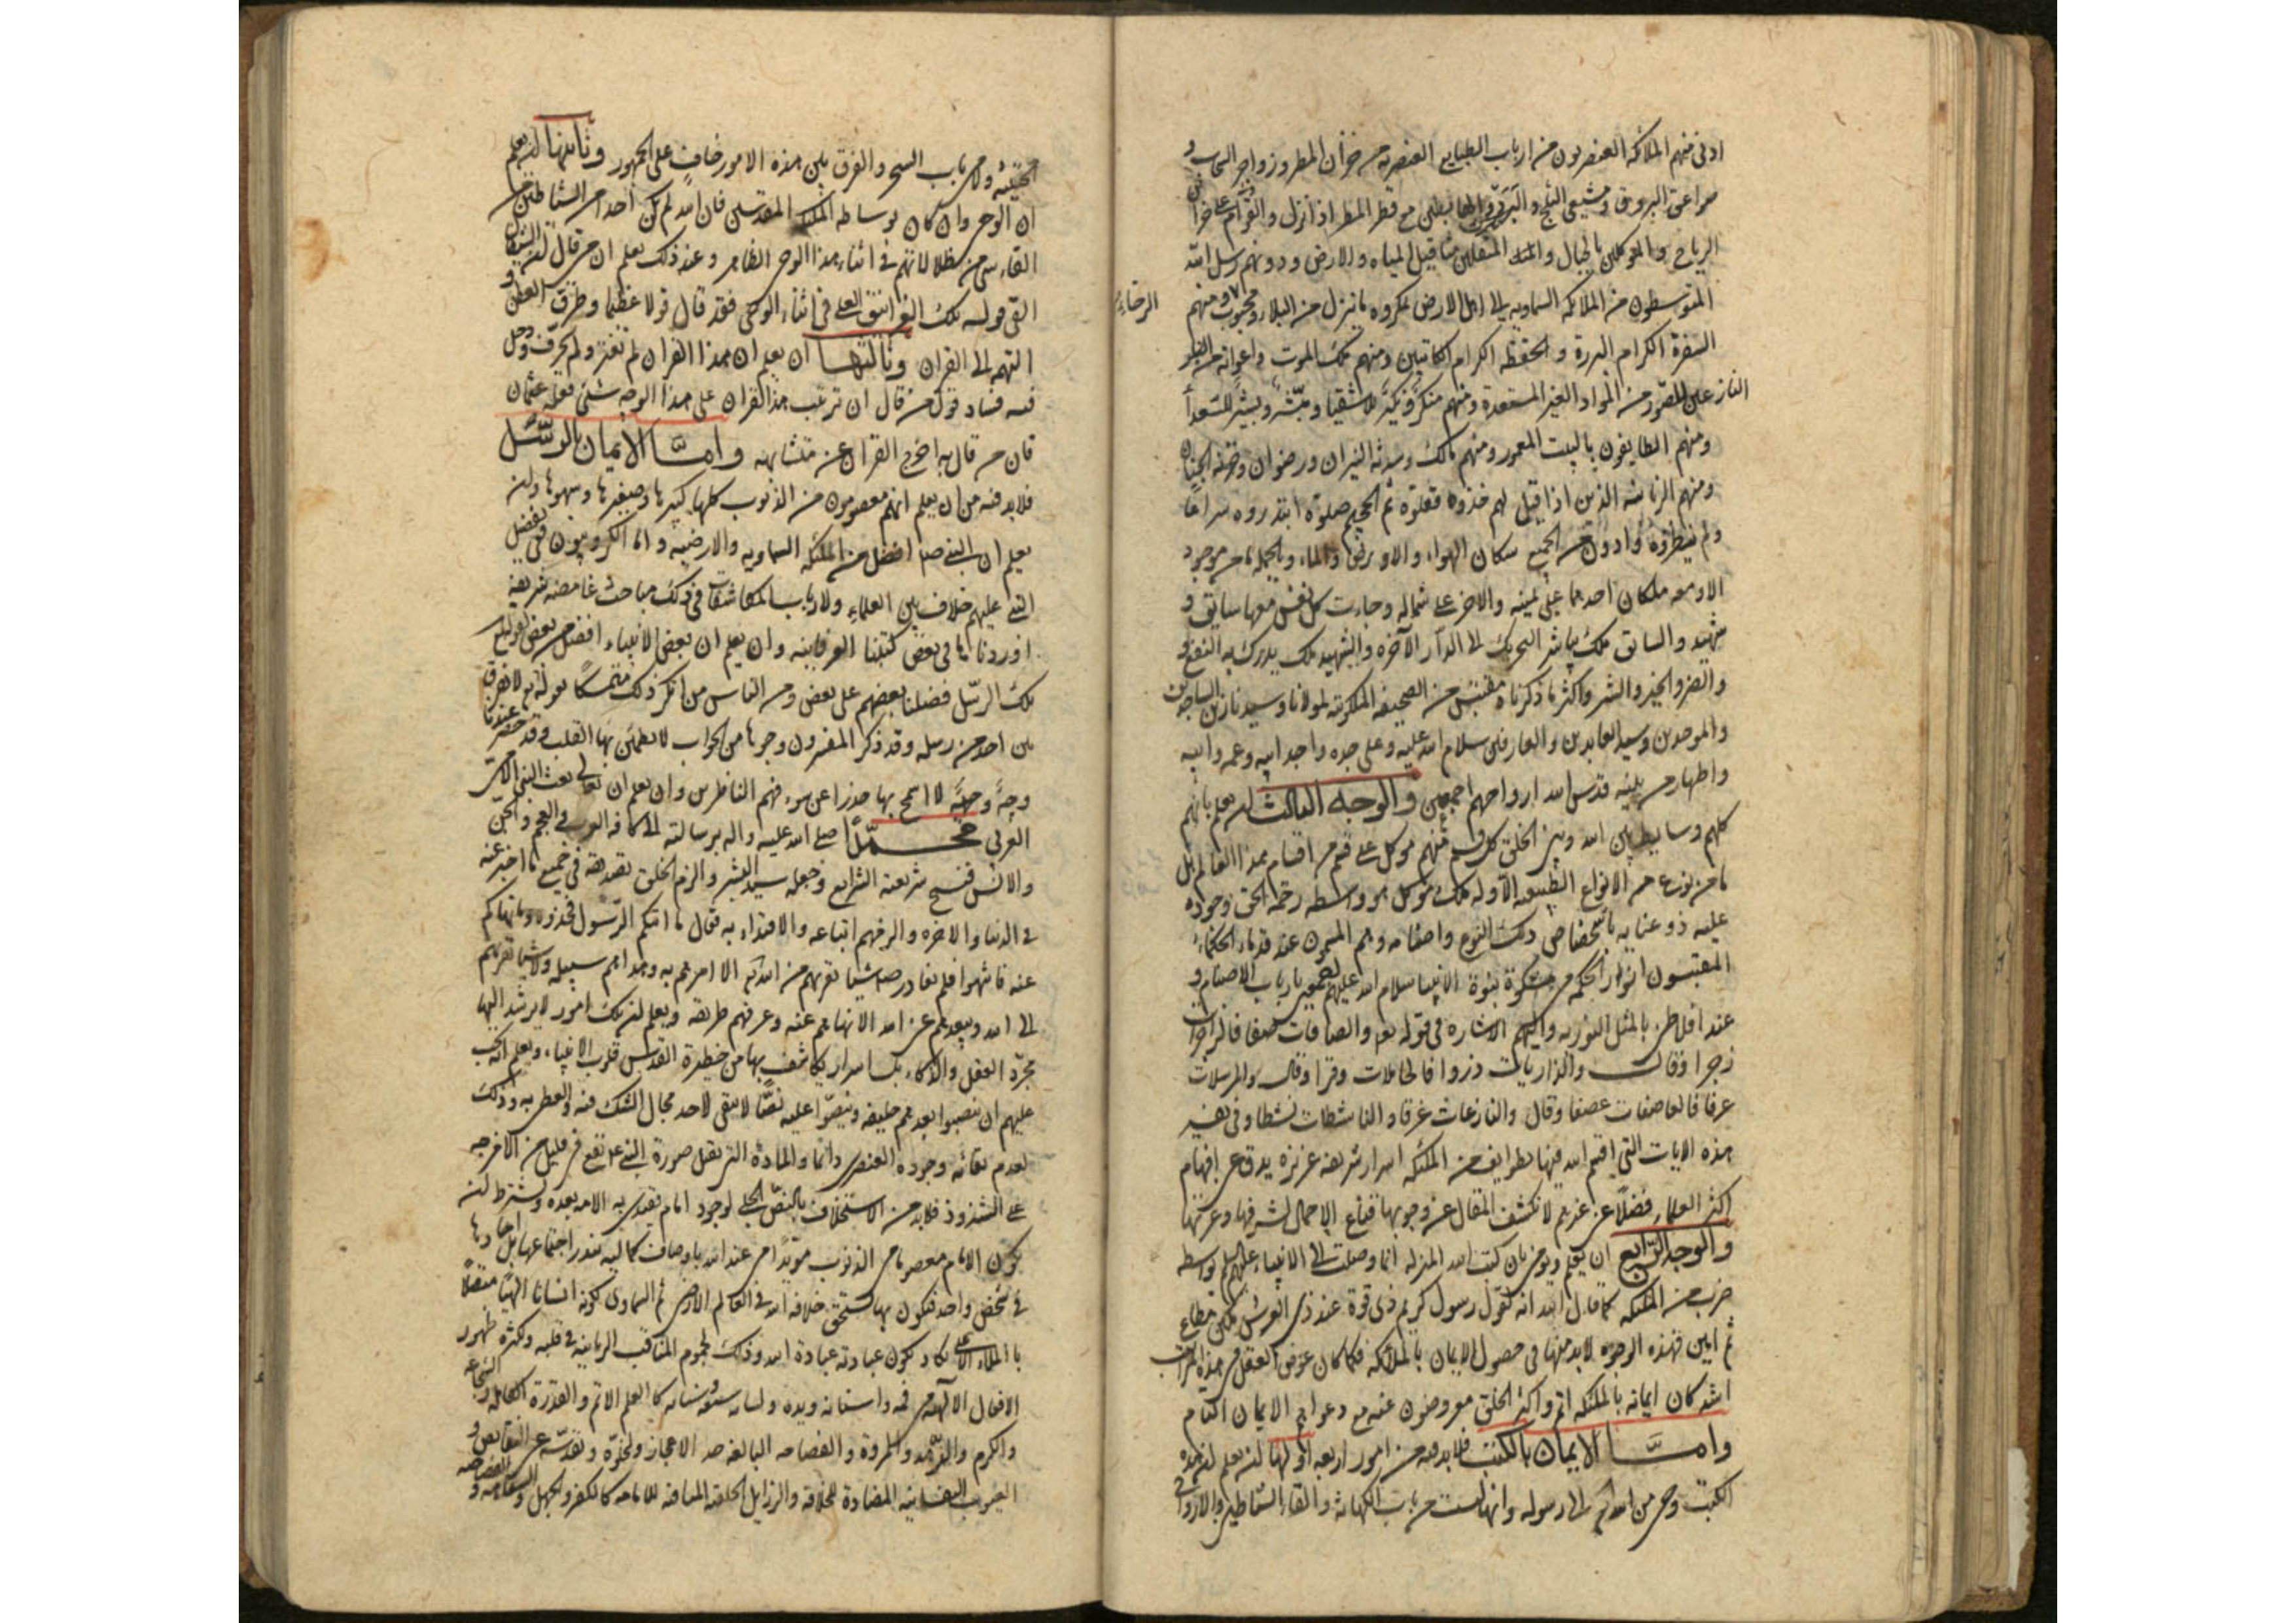 ادنى فمنهم الملائكة العنصريون من ارباب الطبايع العنصرية من خزان المطر وزواجر السحاب و
صواعق البروق ومشيعى الثلج والبرد والهابطين مع قطر المطر اذا نزل والقوام على خزائن
الرياح والموكلين بالجبال والمثقلين مثاقيل المياه والارض ودونهم رسل الله
المتوسطون من الملائكة السماوية الى اهل الارض بمكروه ما ينزل من البلاء ومحبوب
الرخاء
ومنهم
السفرة الكرام البررة والحفظة الكرام الكاتبين ومنهم ملك الموت واعوانه
النازعين للصور من المواد الغير المستعدة ومنهم منكر ونكير للاشقيا ومبشر وبشير للسعدا
ومنهم الطايفون بالبيت المعمور ومنهم مالك وسدنة النيران ورضوان وخزنة الجنان
ومنهم الزبانية الذين اذا قيل لهم خذوه فغلوه ثم الجحيم صلوه ابتدروه سراعا
ولم ينظروه وادون من الجميع سكان الهواء والارض والماء وبالجملة ما من موجود
الا ومعه ملكان احدهما على يمينه والاخر على شماله وجاءت كل نفس معها سايق و
شهيد والسايق ملك يباشر التحريك الى الدار الآخرة والشهيد ملك يدرك به النفع و
والضر والخير والشر واكثر ما ذكرناه مقتبس من الصحيفة الملكوتية لمولانا وسيدنا زين الساجدين
والموحدين وسيد العابدين والعارفين سلام الله عليه وعلى جده واجداده وابيه وعمه وابيه
واطهار من بيته قدس الله ارواحهم اجمعين والوجه الثالث ان يعلم بانهم
كلهم وسايط بين الله وبين الخلق كل قسم منهم موكل على قسم من اقسام هذا العالم بل
ما من نوع من الانواع الطبيعية الا وله ملك موكل هو واسطة رحمة الحق وجوده
عليه ذو عناية باشخاص ذلك النوع واصنامه وهم المسمون عند قدماء الحكماء
المقتبسون انوار الحكمة من مشكوة نبوة الانبيا سلام الله عليهم اجمعين بارباب الاصنام و
عند افلاطن بالمثل النورية واليهم الاشارة فى قوله تعالى والصافات صفا فالزاجرات
زجرا وقال والذاريات ذروا فالحاملات وقرا وقال والمرسلات
عرفا فالعاصفات عصفا وقال والنازعات غرقا والناشطات نشطا وفى تفسير
هذه الايات التى اقسم الله فيها بطوايف من الملئكة اسرار شريفة عزيزة يدق عن افهام
اكثر العلماء فضلا عن غيرهم لا نكشف المقال عن وجوهها قناع الاجمال لشرفها وعزتها
والوجه الرابع ان يعلم ويؤمن بان كتب الله المنزلة انما وصلت الى الانبياء عليهم السلم بواسطة
ضرب من الملئكة كما قال الله انه لقول رسول كريم ذى قوة عند ذى العرش مكين مطاع
ثم امين فهذه الوجوه لابد منها فى حصول الايمان بالملائكة فكلما كان غوص العقل فى هذه المراتب
اشد كان ايمانه بالملئكة اتم واكثر الخلق معروضون عنه مع دعواهم الايمان التام
وامـا الايمان بالكتب فلابد فيه من امور اربعة اولها ان يعلم ان هذه
الكتب وحى من الله تعالى الى رسوله وانها ليست من باب الكهانة والقاء الشياطين والارواح
الخبيثة ولا من باب السحر والفرق بين هذه الامور خاف على الجمهور وثانيها ان يعلم
ان الوحى وان كان بوساطة الملئكة المقدسين فان الله لم يمكن احدا من الشياطين من
القاء شى من ضلالاتهم فى اثناء هذا الوحى الطاهر وعند ذلك يعلم ان من قال ان الشيطان
القى قوله تلك الغرانيق العلى فى اثناء الوحى فقد قال قولا عظيما وطرق الطعن و
التهم الى القران وثالثها ان يعلم ان هذا القران لم يتغير ولم يحرف ودخل
فيه فساد قول من قال ان ترتيب هذا القران على هذا الوجه شى فعله عثمان
فان من قال به اخرج القران عن متشابهه وامـا الايمان بالرسـل
فلابد فيه من ان يعلم انهم معصومون من الذنوب كلها كبيرها وصغيرها وسهوها وان
يعلم ان النبى صلم افضل من الملئكة السماوية والارضية واما الكروبيون ففى تفضيل
النبى عليهم خلاف بين العلماء ولارباب المكاشفات فى ذلك مباحث غامضة شريفة
اوردناها فى بعض كتبنا العرفانية وان يعلم ان بعض الانبياء افضل من بعض لقوله تعالى
تلك الرسل فضلنا بعضهم على بعض ومن الناس من انكر ذلك متمسكا بقوله تعالى لا نفرق
بين احد من رسله وقد ذكر المفسرون وجوها من الجواب لا يطمئن بها القلب وقد حضر عندنا
وجه وجيه لا اسمح بها حذرا عن سوء فهم الناظرين وان يعلم ان تعالى بعث النبى الامى
العربى محمـدا صلى الله عليه واله برسالته الى كافة العرب والعجم والجن
والانس فنسخ بشريعته الشرايع وجعله سيد البشر والزم الخلق تصديقه فى جميع ما اخبر عنه
فى الدنيا والاخرة والزمهم اتباعه والاقتداء به فقال ما اتيكم الرسول فخذوه وما نهاكم
عنه فانتهوا فلم يغادر صم شيئا يقربهم من الله تعالى الا امرهم به وهداهم سبيله ولا شيئا يقربهم
الى النار ويبعدهم عن الله الا نهاهم عنه وعرفهم طريقه ويعلم ان تلك امور لا يرشد اليها
مجرد العقل والذكاء بل اسرار يكاشف بها من حظيرة القدس قلوب الانبياء ويعلم انه يجب
عليهم ان ينصبوا بعدهم خليفة وينصوا عليه نصا لا يبقى لاحد مجال الشك فيه والطعن به وذلك
لعدم بقائه وجوده العنصرى دائما والمادة التى يقبل صورة النبى انما تقع فى قليل من الامزجة
على الشذوذ فلابد من الاستخلاف بالنص الجلى لوجود امام يقتدى به الامة بعده ويشترط ان
يكون الامام معصوما من الذنوب مؤيدا من عند الله باوصاف كمالية يندر اجتماعها بل احادها
فى شخص واحد فيكون بها يستحق خلافة الله فى العالم الارضى ثم السماوى لكونه انسانا الهيا متصلا
بالملاء الاعلى يكاد يكون عبادته عبادة الله وذلك لهجوم المناقب الربانية فى قلبه وكثرة ظهور
الافعال الالهية من فمه واسنانه ويده ولسانه كالعلم الاتم والقدرة الكاملة والشجاعة
والكرم والزهد والمروة والفصاحة البالغة حد الاعجاز وتقدسه عن النقايص و
العيوب النفسانية المضادة للخلافة والرذايل الخلقية المنافية للامامة كالكفر والجهل